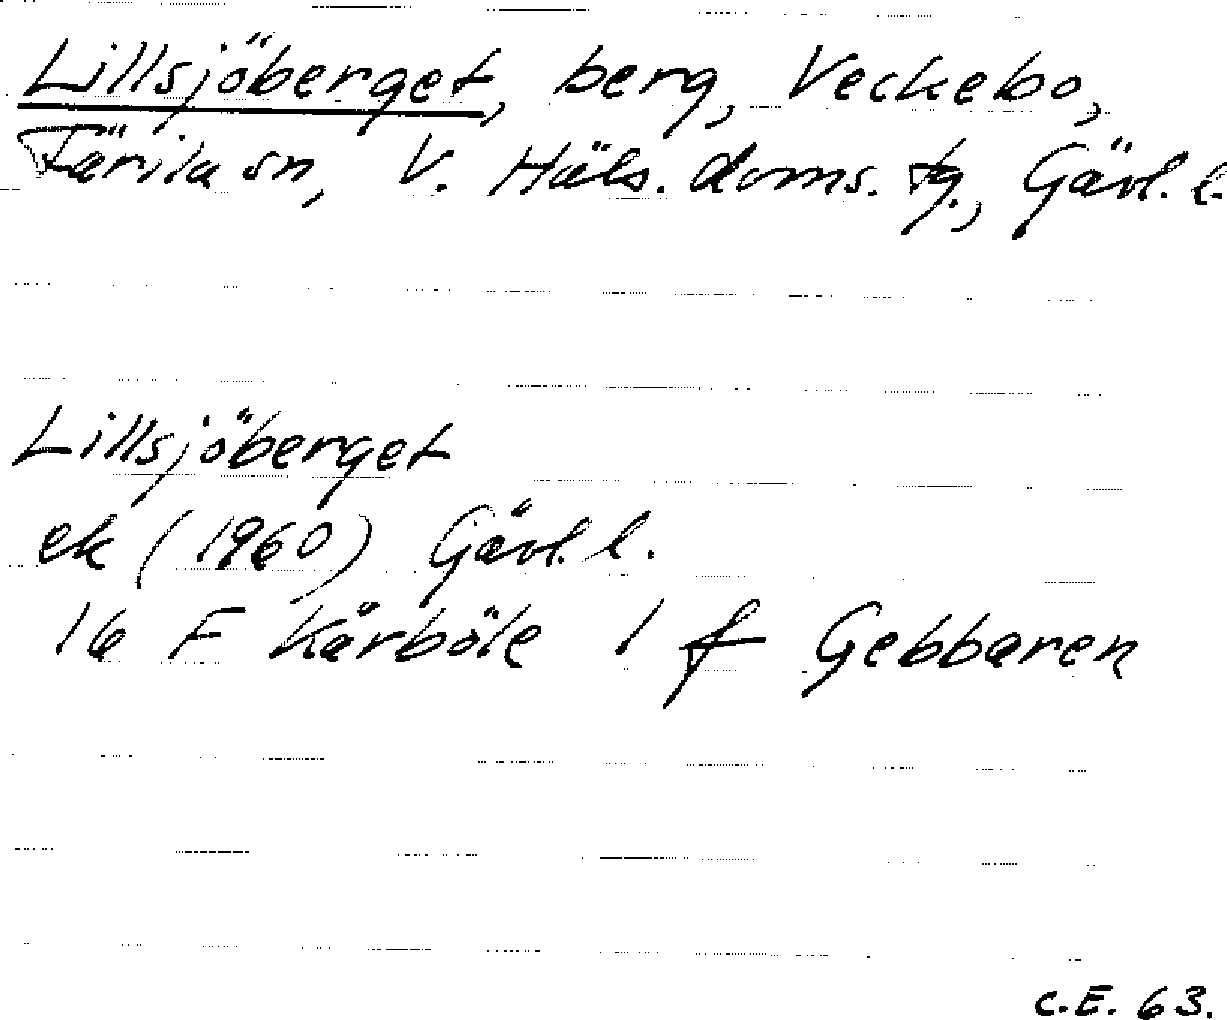 Lillsjöberget, berg, Veckebo,
Färila sn, V. Häls. doms. tg., Gävl. l.
Lillsjöberget
ek (1960) Gävl. l.
16 F Kårböle 1 f Gebbaren
C.E. 63.